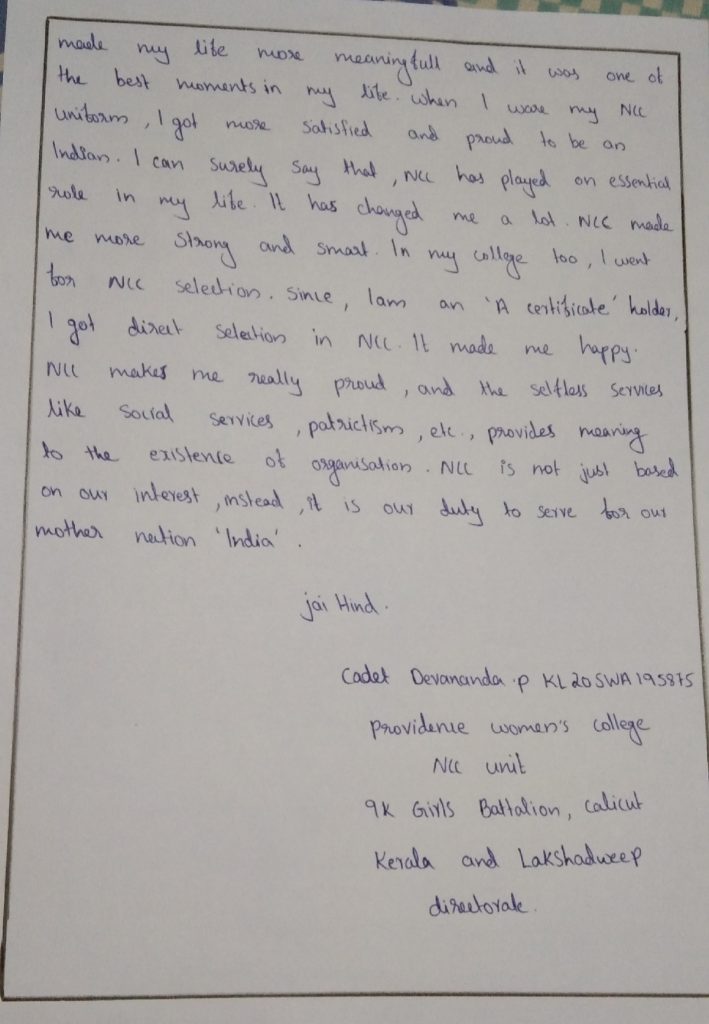 made my life more meaningfull and it was one of
the best moments in my life. when I wore my NCC
uniform, I got more satisfied and proud to be an
Indian. I can surely say that, NCC has played an essential
role in my life. It has changed me a lot. NCC made
me more strong and smart. In my college too, I went
for NCC selection. since, Iam an 'A certificate' holder,
I got direct selection in NCC. It made me happy.
NCC makes me really proud, and the selfless services
like social services, patrictism, etc., provides meaning
to the existence of organisation. NCC is not just based
on our interest, instead, it is our duty to serve for our
mother nation 'India'.
jai Hind.
Cadet Devananda.p KL20SWA195875
providence women's college
NCC unit
9K Girls Battalion, calicut
Kerala and Lakshadweep
directorate.